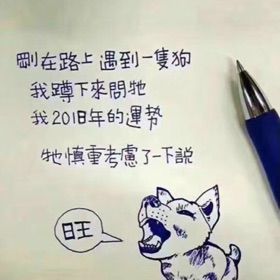 剛在路上遇到一隻狗
我蹲下來問牠
我2018年的運勢
牠慎重考慮了一下說
旺